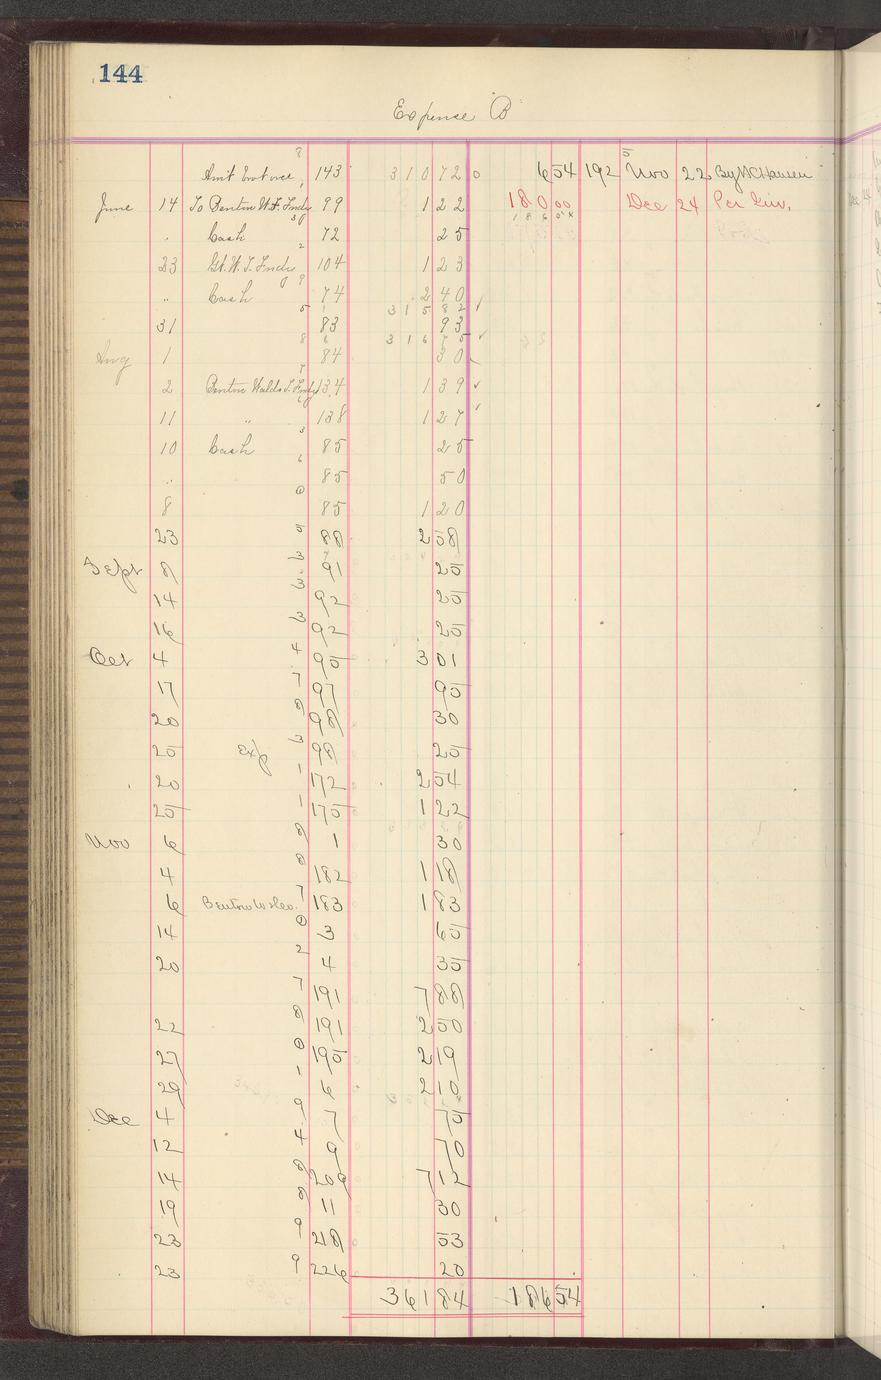 144
Expense "B"
Amt Brot over 143 310 72 6 54 192 Nov 22 By
June 14 To Benton W. T. Fndy 99 1 22 180 00 Dec 24 Per Inv.
" Cash 72 25 186 54
23 Gt. W. T. Fndy 104 1 23
" Cash 74 2 40
315 82
31 83 93
316 75
Aug 1 84 30
2 Benton Waldo T. Fndy 134 1 39
11 " 138 1 27
10 Cash 85 25
" 85 50
8 85 1 20
23 88 2 58
Sept 8 91 25
14 92 25
16 92 25
Oct 4 95 3 01
17 97 95
20 98 30
25 Exp 98 25
20 172 2 54
25 175 1 22
Nov 6 1 30
4 182 1 18
6 Benton 183 1 83
14 3 65
20 4 35
191 7 88
22 191 2 50
27 195 2 19
29 6 2 10
Dec 4 7 75
12 9 70
14 209 7 12
19 11 30
23 218 53
23 226 20
361 84 186 54